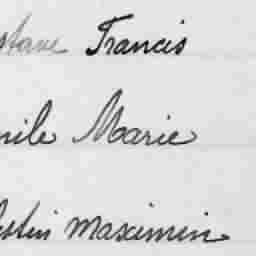 stave Francis
mile Marie
lestin Maximin